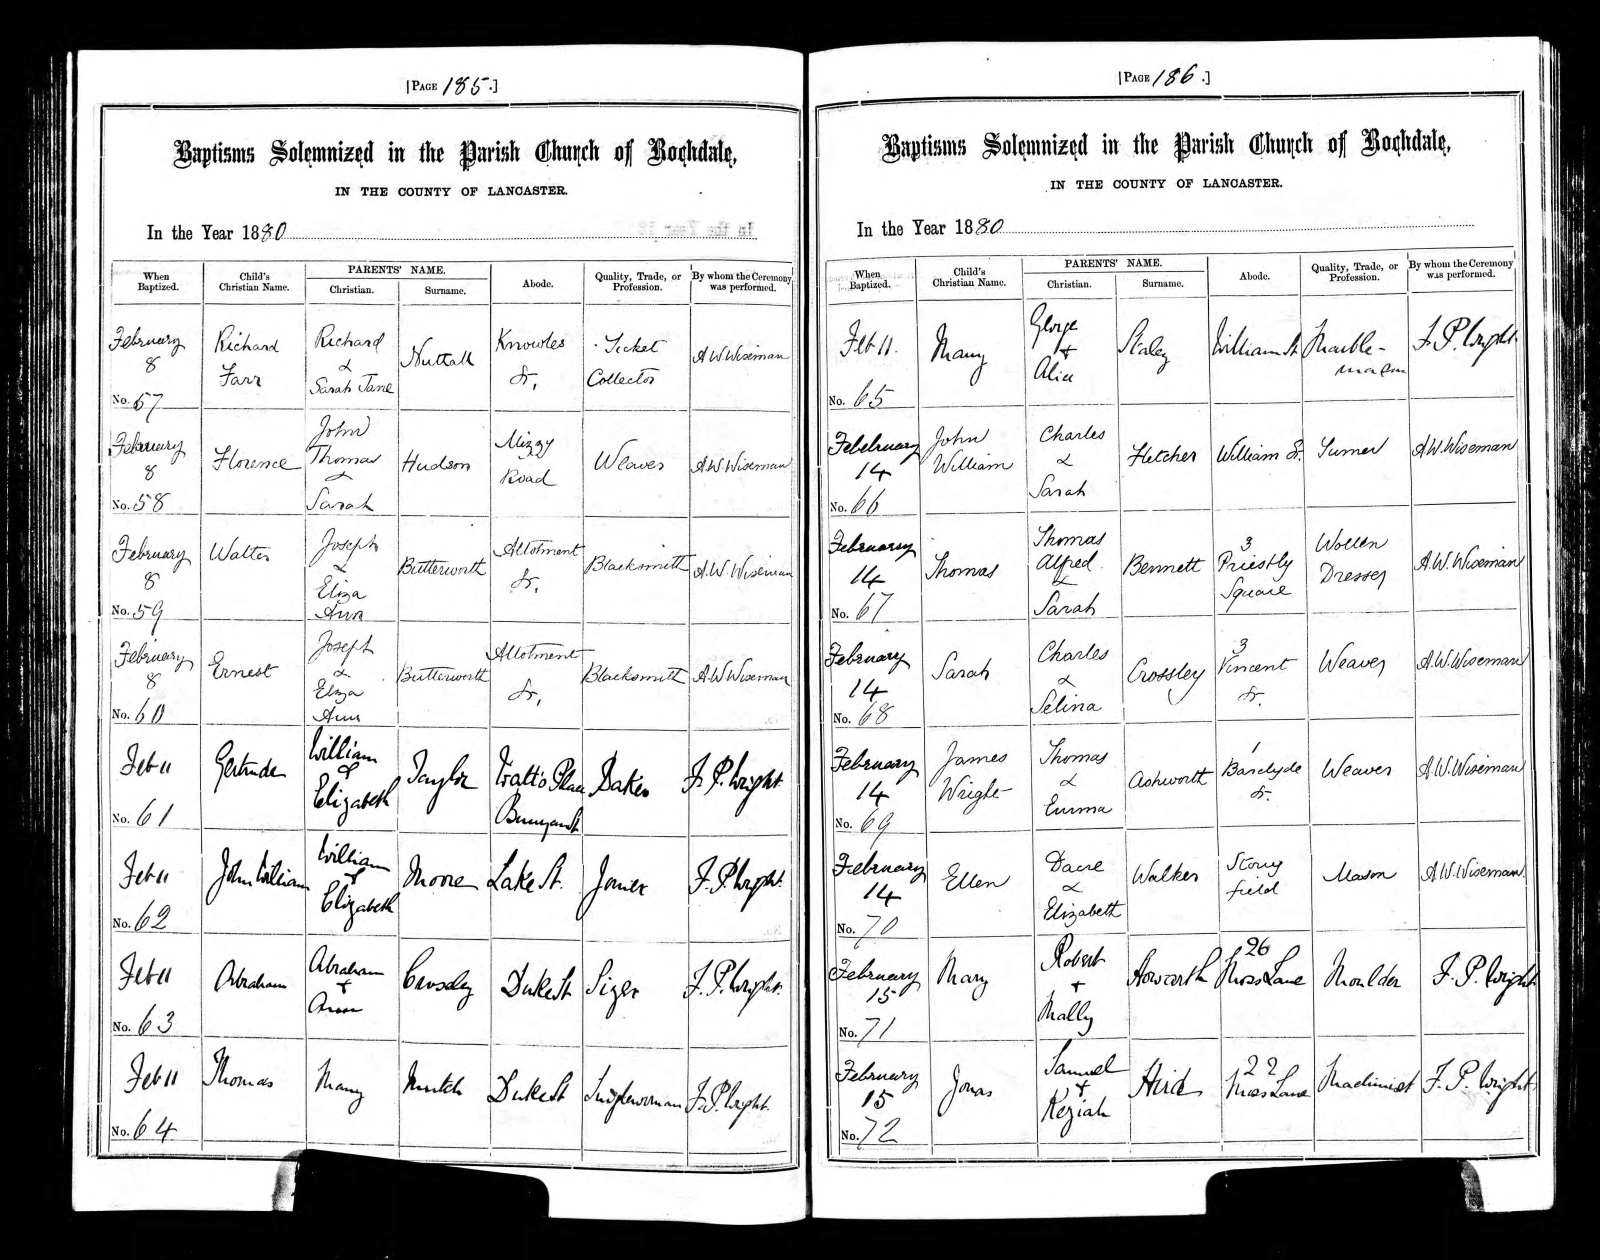 [PAGE 185.]
Baptisms Solemnized in the Parish Church of Rochdale,
IN THE COUNTY OF LANCASTER.
In the Year 1880
When Baptized.
Child's Christian Name.
PARENTS' NAME.
Christian.
Surname.
Abode.
Quality, Trade, or Profession.
By whom the Ceremony was performed.
February 8 No. 57
Richard Farr
Richard & Sarah Jane
Nuttall
Knowles St.
Ticket Collector
A W Wiseman
February 8 No. 58
Florence
John Thomas & Sarah
Hudson
Mizzy Road
Weaver
A W Wiseman
February 8 No. 59
Walter
Joseph & Eliza Ann
Butterworth
Allotment St.
Blacksmith
A. W. Wiseman
February 8 No. 60
Ernest
Joseph & Eliza Ann
Butterworth
Allotment St.
Blacksmith
A W Wiseman
Feb 11 No. 61
Gertrude
William & Elizabeth
Taylor
Place
Bunyan St
F. P. Wright.
Feb 11 No. 62
John William
William + Elizabeth
Moore
Lake St.
Joiner
F. P. Wright.
Feb 11 No. 63
Abraham
Abraham + Ann
Duke St
Sizer
F. P. Wright.
Feb 11 No. 64
Thomas
Mary
Duke St
Singlewoman
F. P. Wright.
[PAGE 186.]
Baptisms Solemnized in the Parish Church of Rochdale,
IN THE COUNTY OF LANCASTER.
In the Year 1880
When Baptized.
Child's Christian Name.
PARENTS' NAME.
Christian.
Surname.
Abode.
Quality, Trade, or Profession.
By whom the Ceremony was performed.
Feb 11. No. 65
Mary
George + Alice
Staley
William St
Marble-
F. P. Wright.
Febebruary 14 No. 66
John William
Charles & Sarah
Fletcher
William St.
Turner
A W. Wiseman
February 14 No. 67
Thomas
Thomas Alfred & Sarah
Bennett
3 Priestly Square
Wollen Dresser
A. W. Wiseman
February 14 No. 68
Sarah
Charles & Selina
Crossley
3 Vincent St.
Weaver
A. W. Wiseman
February 14 No. 69
James Wright
Thomas & Emma
Ashworth
1 Barclyde St.
Weaver
A. W. Wiseman
February 14 No. 70
Ellen
& Elizabeth
Walker
Stony field
Mason
A W. Wiseman
February 15 No. 71
Mary
Robert + Mally
Howarth
26 Moss Lane
Moulder
F. P. Wright
February 15 No. 72
Jonas
Samuel + Keziah
Hird
22 Moss Lane
Machinist
F. P. Wright